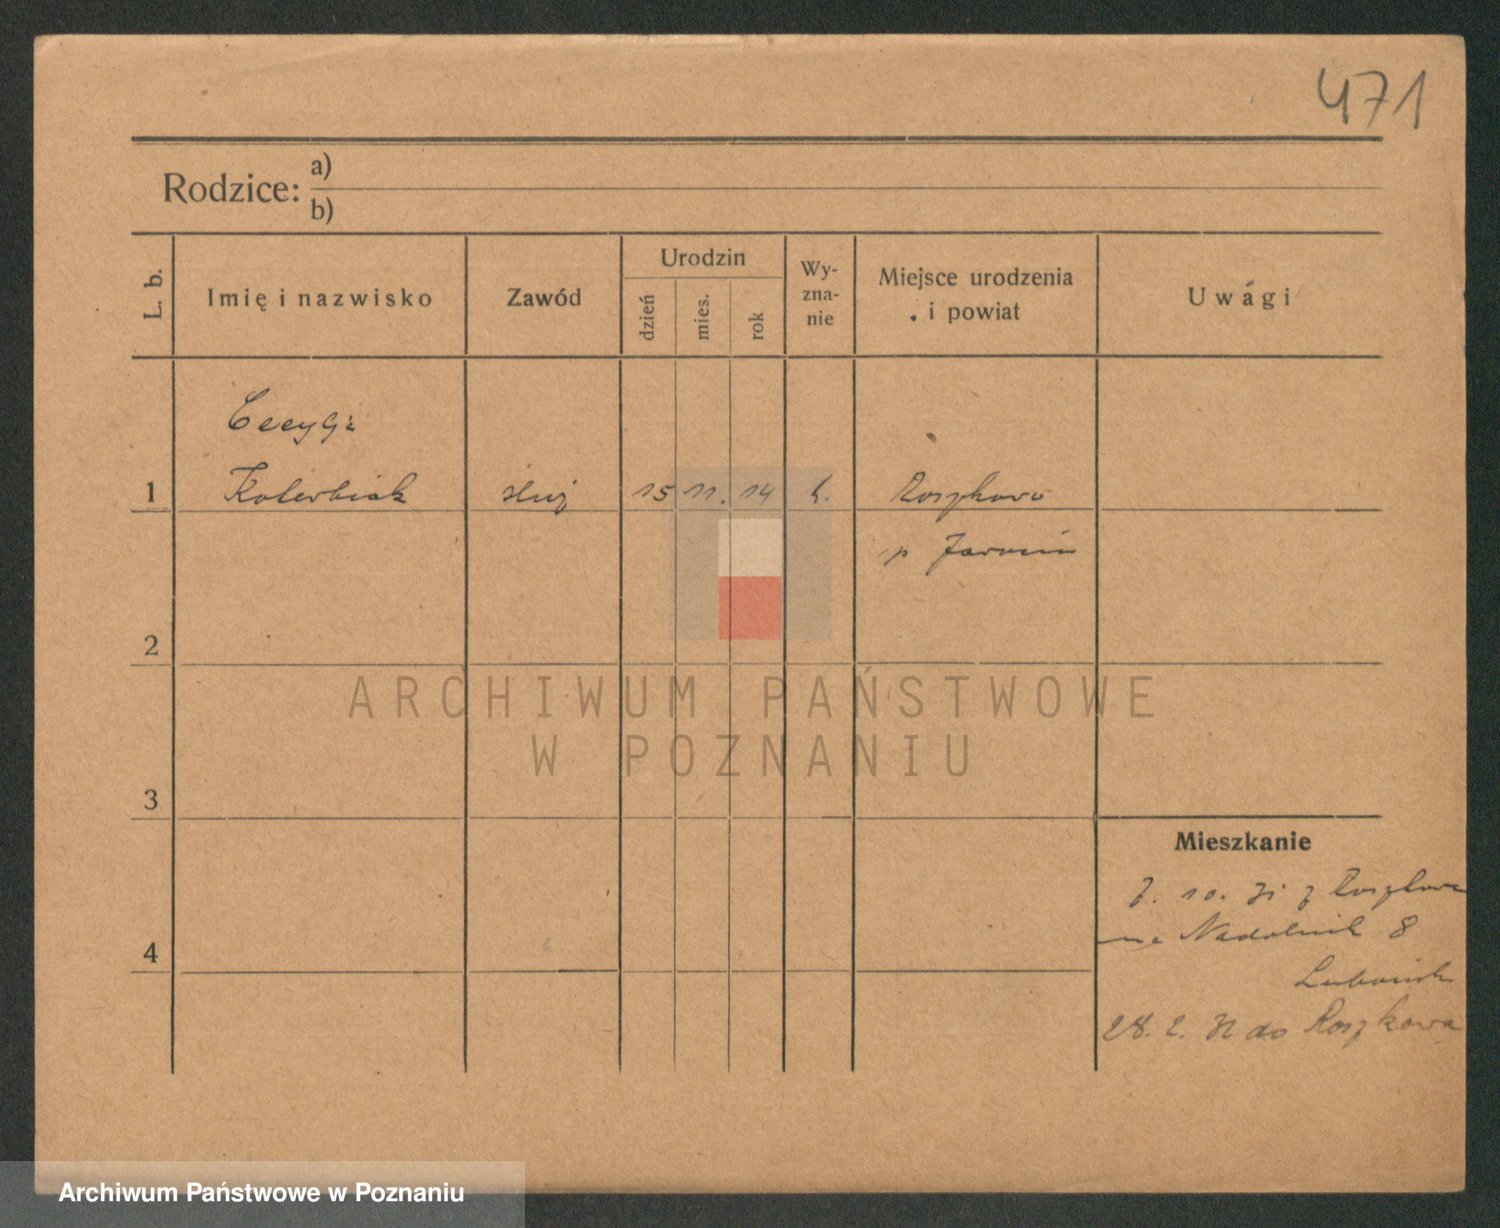 471
Rodzice: a)
b)
L. b.
Imię i nazwisko
Zawód
Urodzin
dzień
mies.
rok
Wy-
zna-
nie
Miejsce urodzenia
i powiat
Uwagi
Cecylja
1
służ
15
11.
14
k.
Roszkowo
p Jarocin
2
3
4
Mieszkanie
7. 10. 31 z Roszkowa
na Nadolnik 8
28. 2. 32 do Roszkowa
ARCHIWUM PAŃSTWOWE
W POZNANIU
Archiwum Państwowe w Poznaniu